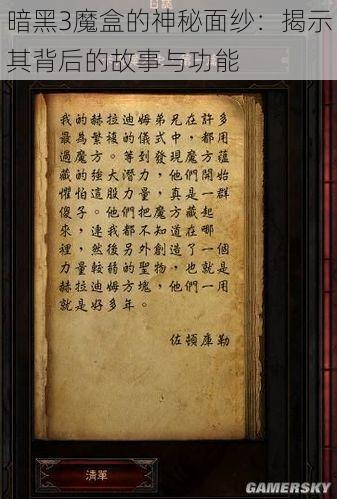 暗黑3魔盒的神秘面纱：揭示
其背后的故事与功能
日誌
我的赫拉迪姆弟兄在許多
最為繁複的儀式中，都用
過魔方。等到發現魔方蘊
藏的強大潛力，他們開始
懼怕這股力量，真是一群
傻子。他們把魔方藏了起
來，連我都不知道在哪
裡，然後另外創造了一個
力量較弱的聖物，也就是
赫拉迪姆方塊，他們一用
就是好多年。
佐頓庫勒
清單
GAMERSKY